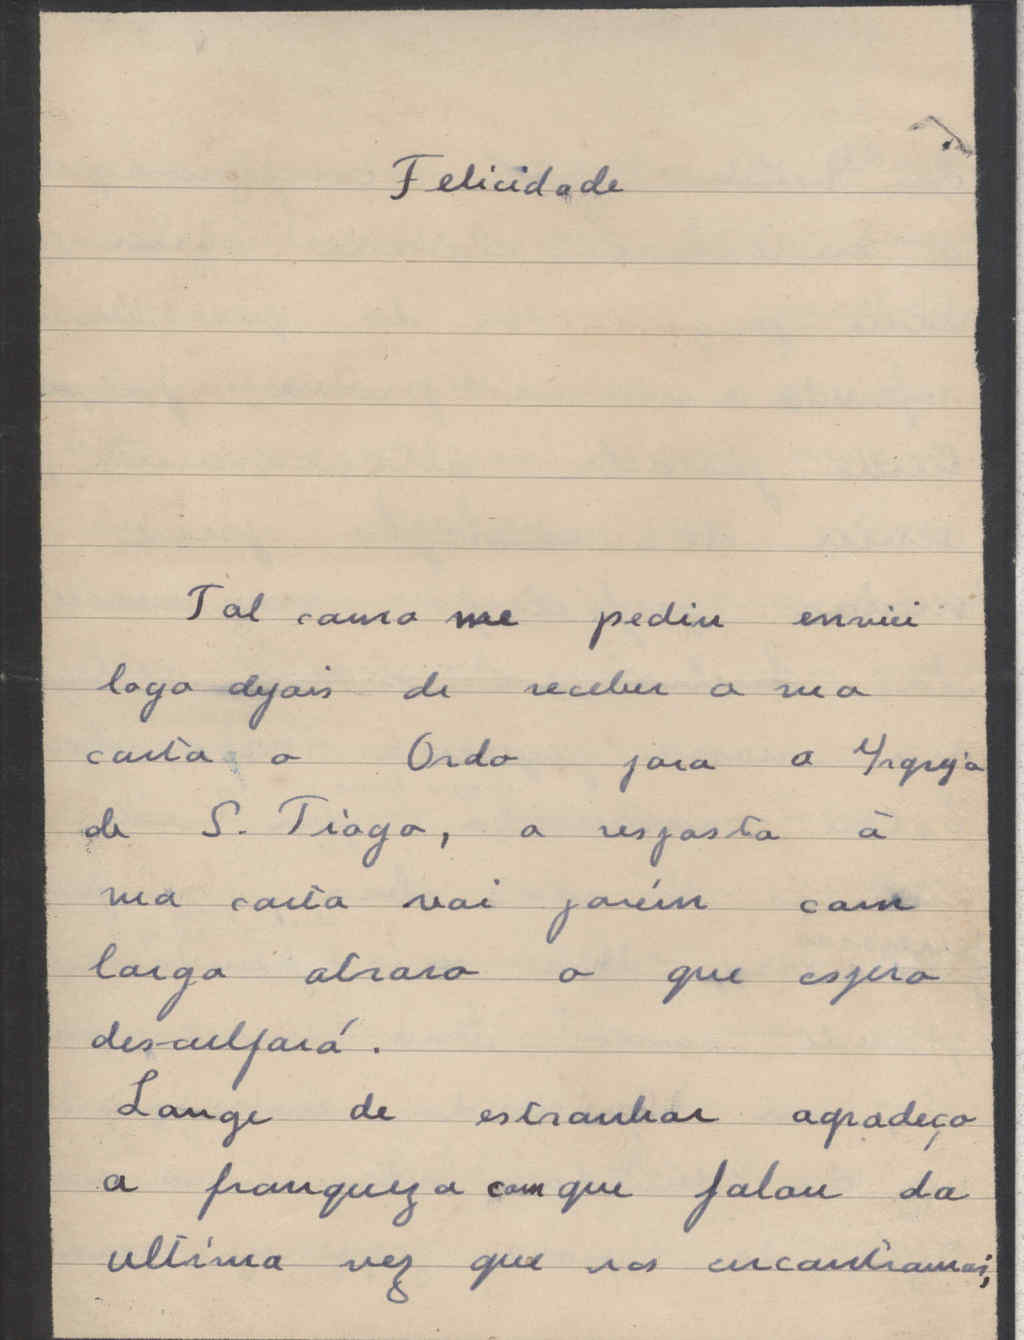 Felicidade
Tal como me pediu enviei
logo depois de receber a sua
carta o Ordo para a Ygreja
de S. Tiago, a resposta à
sua carta vai porém com
largo atraso o que espero
desculpará.
Longe de estranhar agradeço
a franqueza com que falou da
ultima vez que nos encontramos,